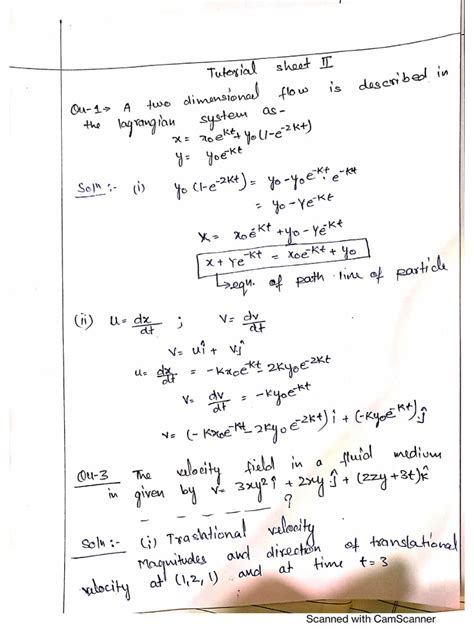 Tutorial sheet II
Qu-1→ A two dimensional flow is described in
the lagrangian system as-
x= x₀e^kt + y₀(1-e^-2kt)
y= y₀e^-kt
Solⁿ:- (i) y₀(1-e^-2kt) = y₀-y₀e^-kt. e^-kt
= y₀-Ye^-kt
X= x₀e^-kt + y₀-Ye^-kt
x+Ye^-kt = x₀e^-kt + y₀
↳ eqn. of path line of particle
(ii) u= dx/dt ; V= dv/dt
V= uî + vĵ
u= dx/dt = -Kx₀e^-kt - 2Ky₀e^-2kt
V= dv/dt = -Ky₀e^-kt
V= (-Kx₀e^-kt - 2Ky₀e^-2kt)î + (-Ky₀e^-kt)ĵ
Qu-3 The velocity field in a fluid medium
in given by V= 3xy²î + 2xyĵ + (2zy+3t)k̂
?
Solⁿ:- (i) Trashtional velocity
Magnitudes and direction of translational
velocity at (1,2,1) and at time t=3
Scanned with CamScanner